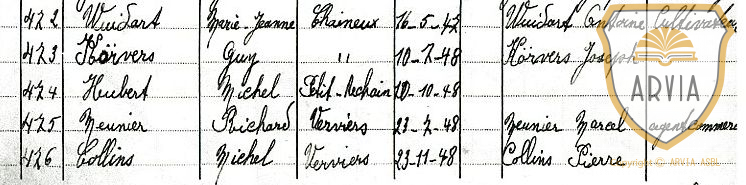 422 Wuidart Marie-Jeanne Chaineux 16-5-42 Wuidart Antoine Cultivateur
423 Körvers Guy " 10-2-48 Körvers Joseph
424 Hubert Michel Petit-Rechain 10-10-48
425 Meunier Richard Verviers 23-2-48 Meunier Marcel agent commerc
426 Collins Michel Verviers 23-11-48 Collins Pierre
ARVIA
Copyright © ARVIA ASBL